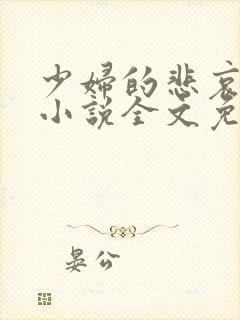 少婦的悲哀
小説全文免
晏公